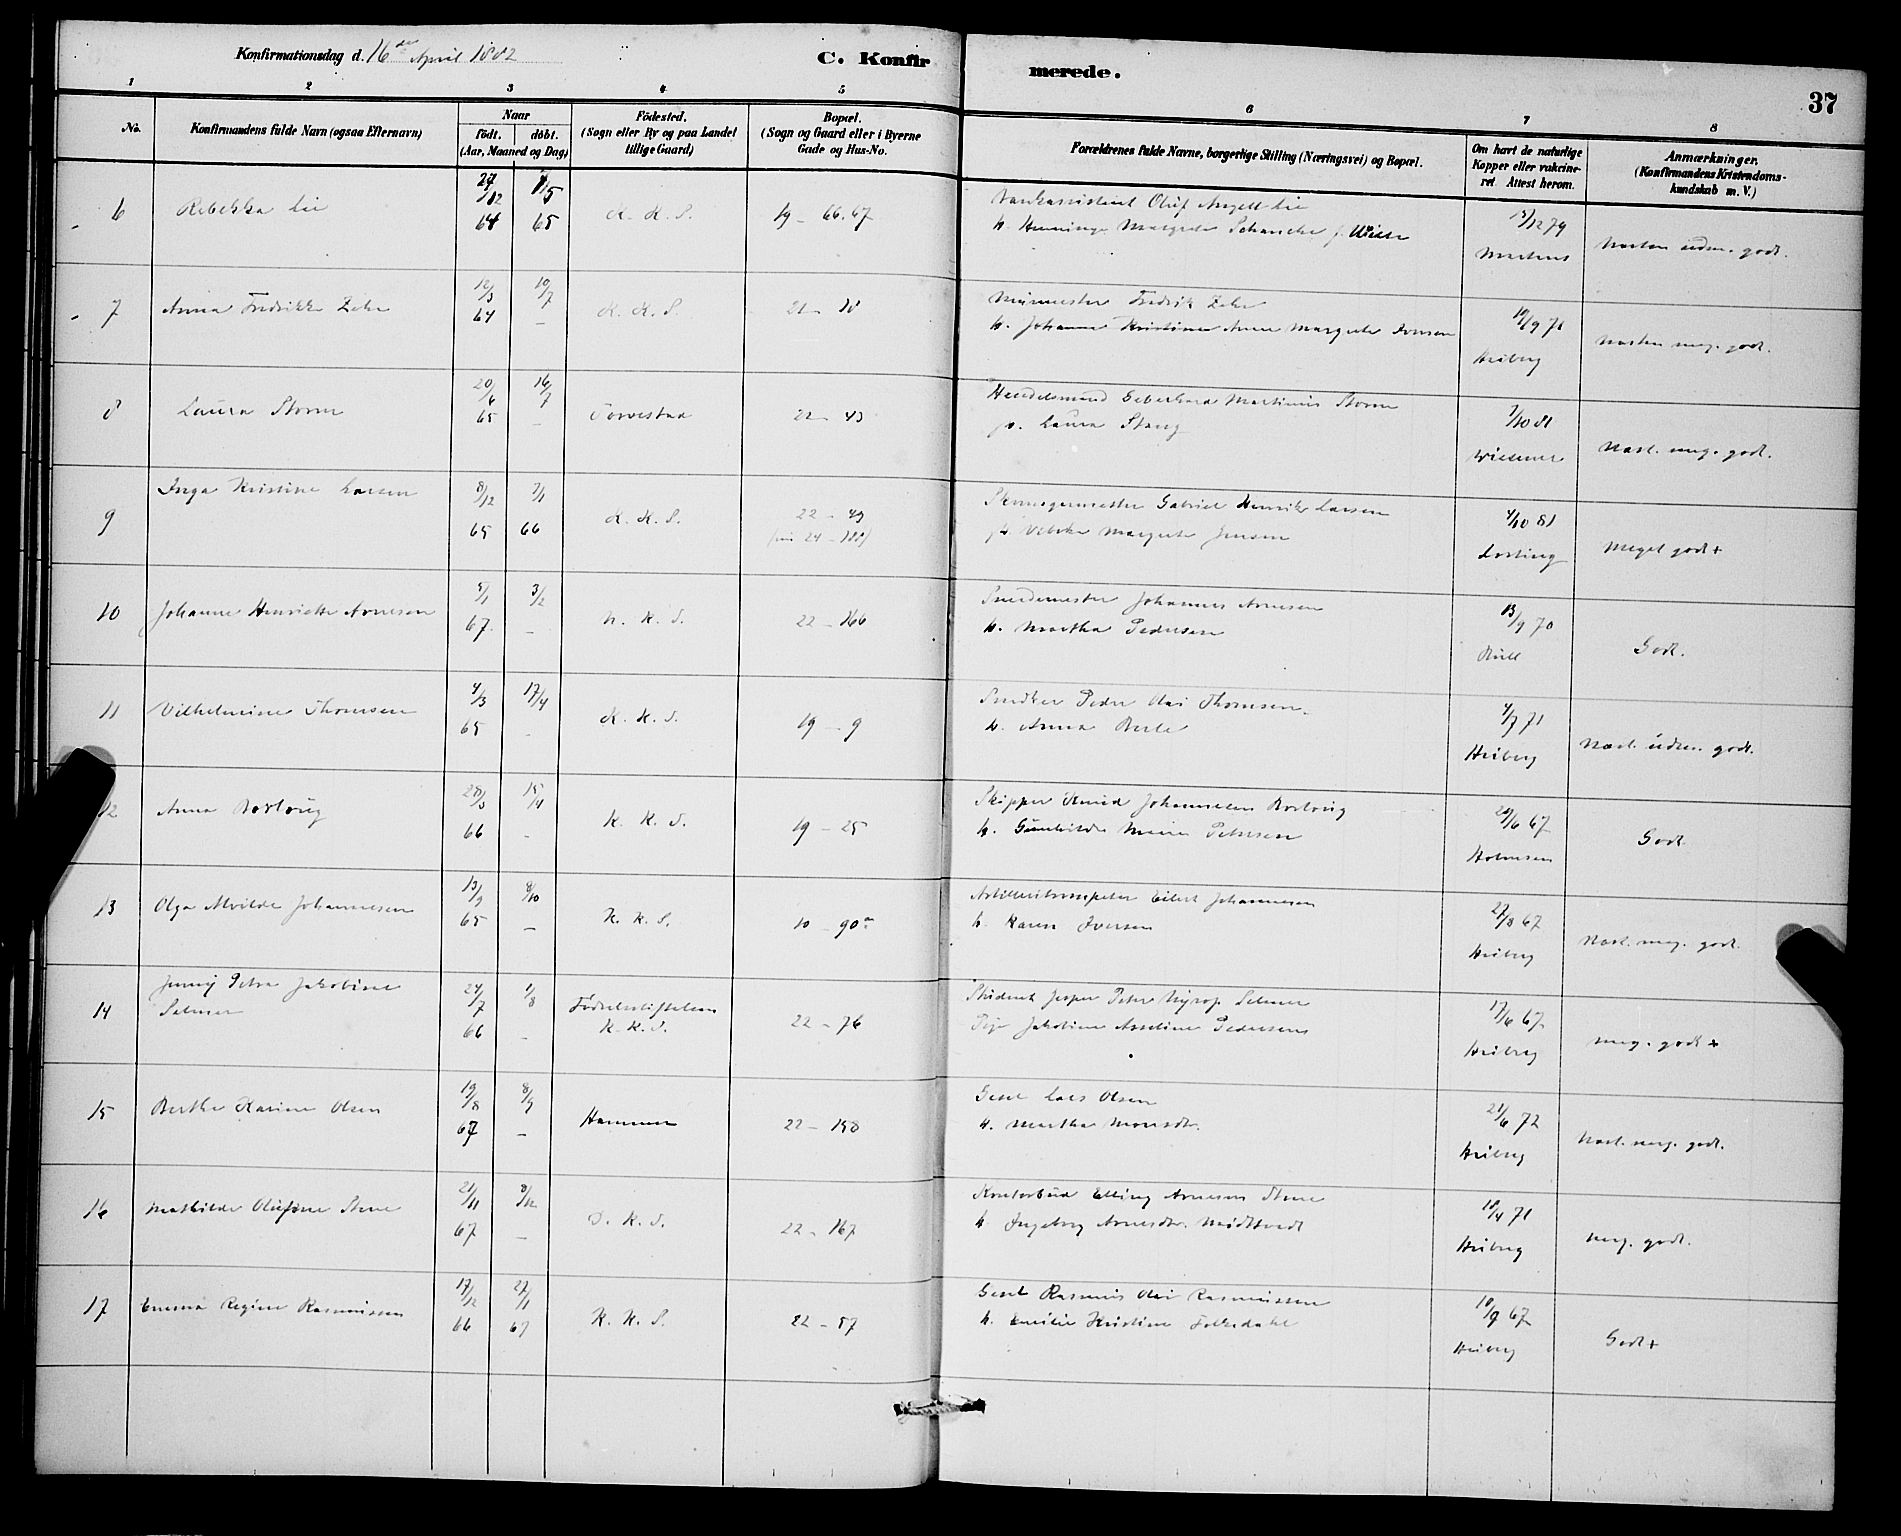 Konfirmationsdag d. 16de April 1882
C. Konfirmerede.
37
1 2 3 4 5 6 7 8
No.
Konfirmandens fulde Navn (ogsaa Efternavn)
Naar
födt. döbt.
(Aar, Maaned og Dag)
Födested.
(Sogn eller By og paa Landet
tillige Gaard)
Bopæl.
(Sogn og Gaard eller i Byerne
Gade og Hus-No.
Forældrenes fulde Navne, borgerlige Stilling (Næringsvei) og Bopæl.
Om havt de naturlige
Kopper eller vakcine-
ret. Attest herom.
Anmærkninger.
(Konfirmandens Kristendoms-
kundskab m. V.)
6 Rebekka Lie 64 65 K. K. S. 19 - 66.67
Olüf Angell Lie
h. Henninge Margrete
12 79
Martens
Næsten udm. godt.
7 Anna Fredrikke 12/3 64 10/7 - K. K. S. 21 - 18
Murmester Fredrik
h. Anne Margrete Iversen
19/9 71
Heiberg
Næsten meg. godt.
8 Laura Storm 20/6 65 16/7 - Torvestad 22 - 43
Handelsmand Martinus Storm
h. Laura Stang
7/10 81
Wiesener
Næst. meg. godt.
9 Inga Kristine Larsen 8/12 65 7/1 66 K. K. S. 22 - 49
Gabriel Henrik Larsen
h. Vibeke Margrete Jensen
4/10 81
Meget godt +
10 Johanne Henriette Arnesen 5/1 67 3/2 - N. K. S. 22 - 166
Smedemester Johannes Arnesen
h. Martha Pedersen
13/9 70
Godt.
11 Vilhelmine Thomsen 4/3 65 17/4 - K. K. S. 19 - 9
Snedker Peder Olai Thomsen.
h. Anna
4/7 71
Heiberg
Næst. udm. godt.
12 Anna 28/3 66 15/4 - K. K. S. 19 - 25
Skipper Knud Johannesen
h. Gunhilde Marie Petersen
29/6 67
Holmsen
Godt.
13 Olga Alvilde Johannesen 13/9 65 8/10 - K. K. S. 10 - 90a
Eilert Johannesen
h. Karen Iversen
27/8 67
Heiberg
Næst. meg. godt.
14 Jenny Petra Jakobine
Selmer 24/7 66 1/8 - Fødselsstiftelsen
K. K. S. 22 - 76
Student Jesper Peter Nyrop Selmer
Pige Jakobine Pedersen
17/6 67
Heiberg
meg. godt +
15 Berthe Karine Olsen 19/8 67 8/9 - Hammer 22 - 158
Gesel Lars Olsen
h. Martha Monsdr.
21/6 72
Heiberg
Næst. meg. godt.
16 Mathilde Olufine Stene 21/11 67 8/12 - D. K. S. 22 - 167
Kontorbud Elling Arnesen Stene
h. Ingeborg Arnesdr. Midttvedt
18/4 71
Heiberg
meg. godt.
17 Emma Regine Rasmussen 17/12 66 27/1 67 K. K. S. 22 - 57
Gesel Rasmus Olai Rasmussen
h. Emilie Kristine Folkedahl
10/9 67
Heiberg
Godt +